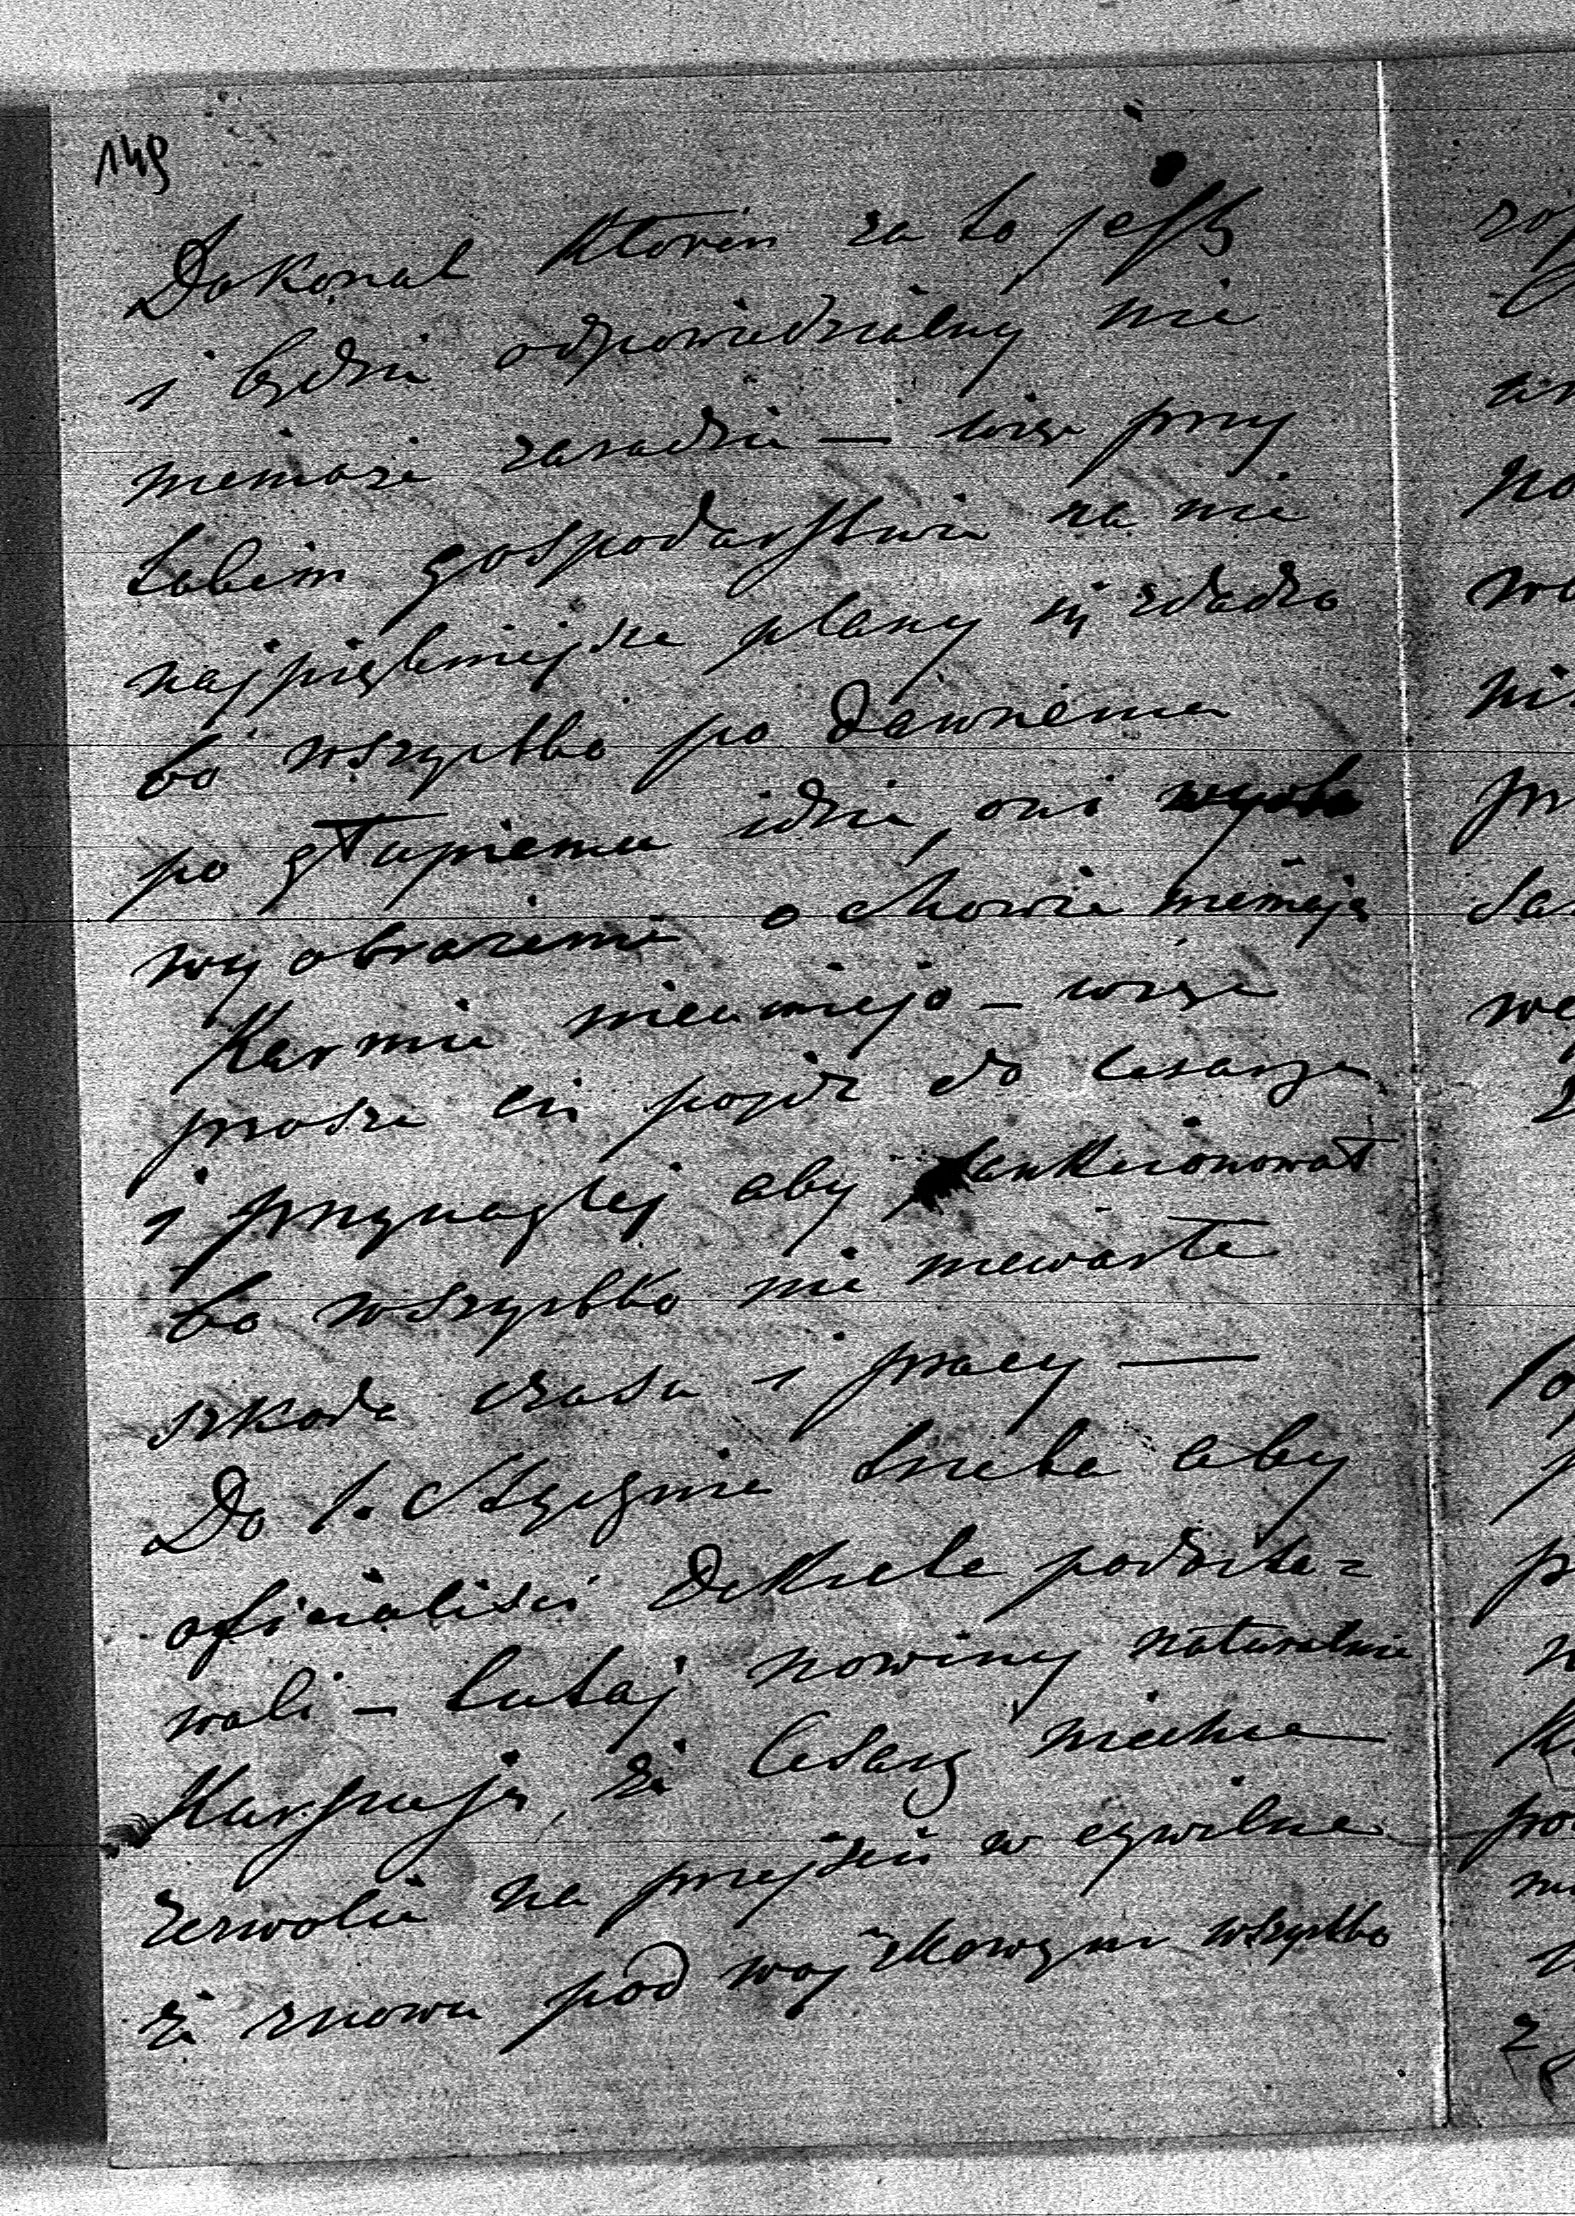 149
Dokonał Ktoren za to jest
i będzie odpowiedzialny nie
niemoże zaradzić — więc przy
takim gospodarstwie na nic
najpiękniejsze plany się zdadzo
bo wszystko po dawnemu
po głupiemu idzie, oni
wyobrażenia o chowie niemają
Karmić nieumiejo — więc
prosze cie pojdz do Cesarza
i przynaglej aby sankcionował
bo wszystko nic niewarte
szkoda czasu i pracy —
Do 1. Stycznia trzeba aby
oficialisci Dekreta podosta=
wali — tutaj nowiny naturalnie
Kursuja, że Cesarz niechce
zezwolic na przejscie w cywilne
że znowu pod wojskowym wszystko